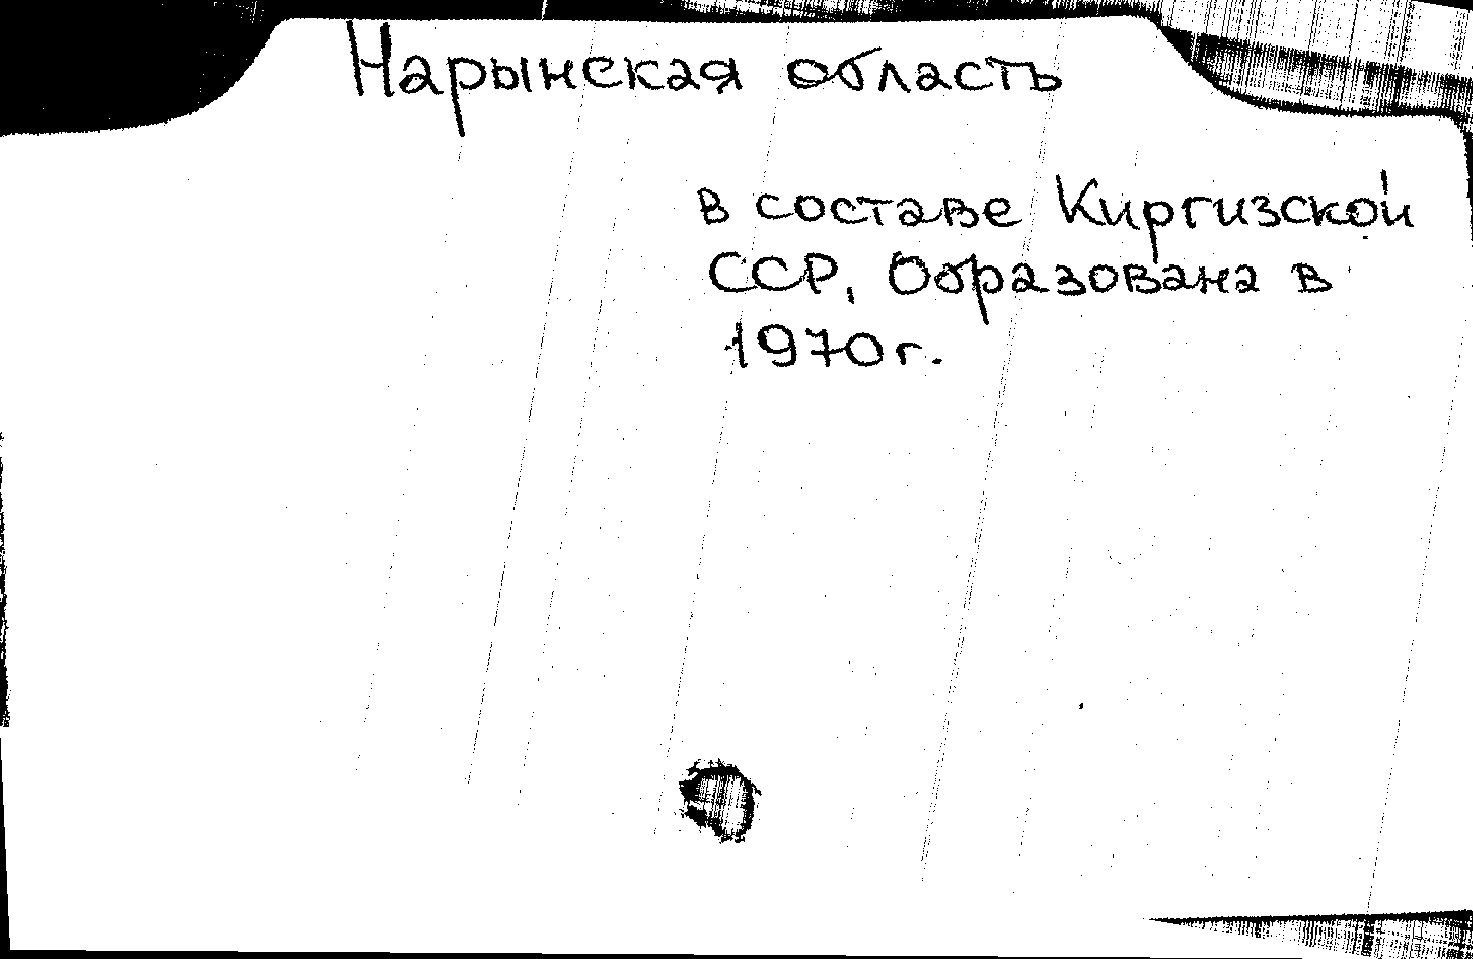 Нарынская область
в составе Киргизской
ССР, Образована в
1970г.